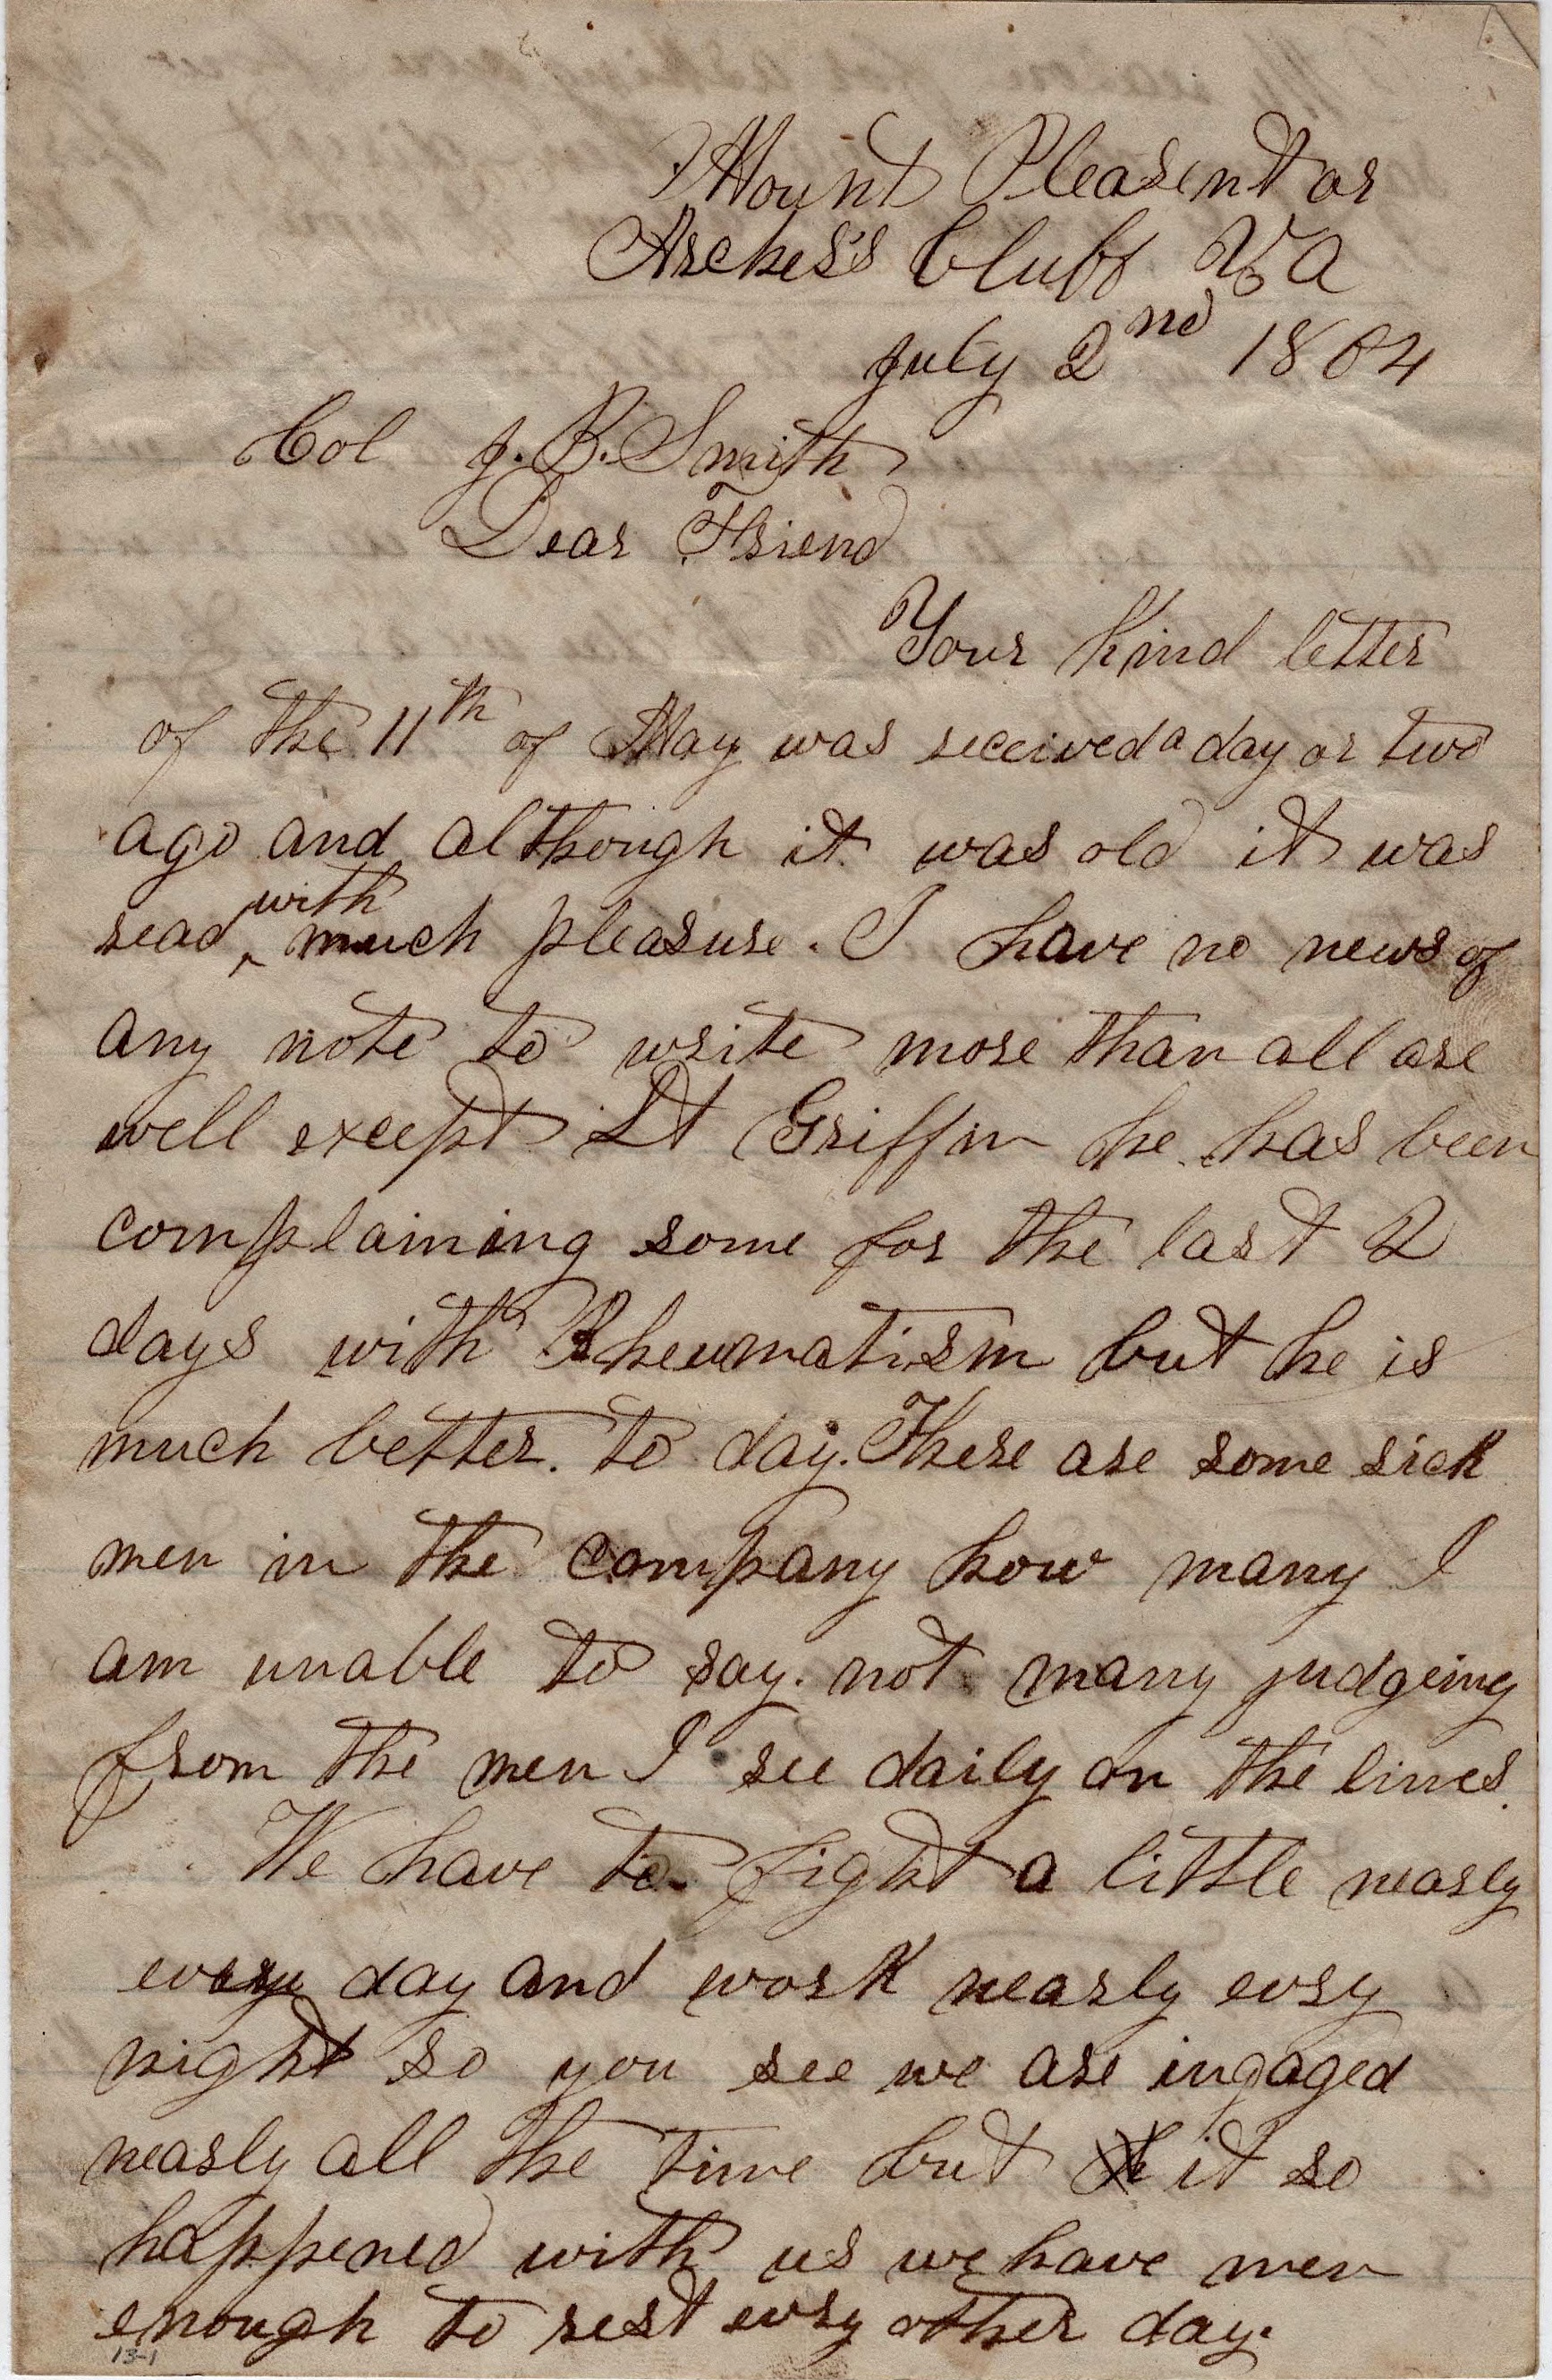 Mount Pleasent or
Archer's Bluff Va
July 2nd 1864
Col J. B. Smith
Dear Friend
Your kind letter
of the 11th of May was received a day or two
ago and although it was old it was
with
read ^ much pleasure. I have no news of
any note to write more than all are
well except Lt Griffin he has been
complaining some for the last 2
days with Rheumatism but he is
much better to day. There are some sick
men in the company how many I
am unable to say. not many judgeing
from the men I see daily on the lines.
We have to fight a little nearly
every day and work nearly evry
night so you see we are ingaged
nearly all the time but it so
happened with us we have men
enough to rest evry other day.
13-1